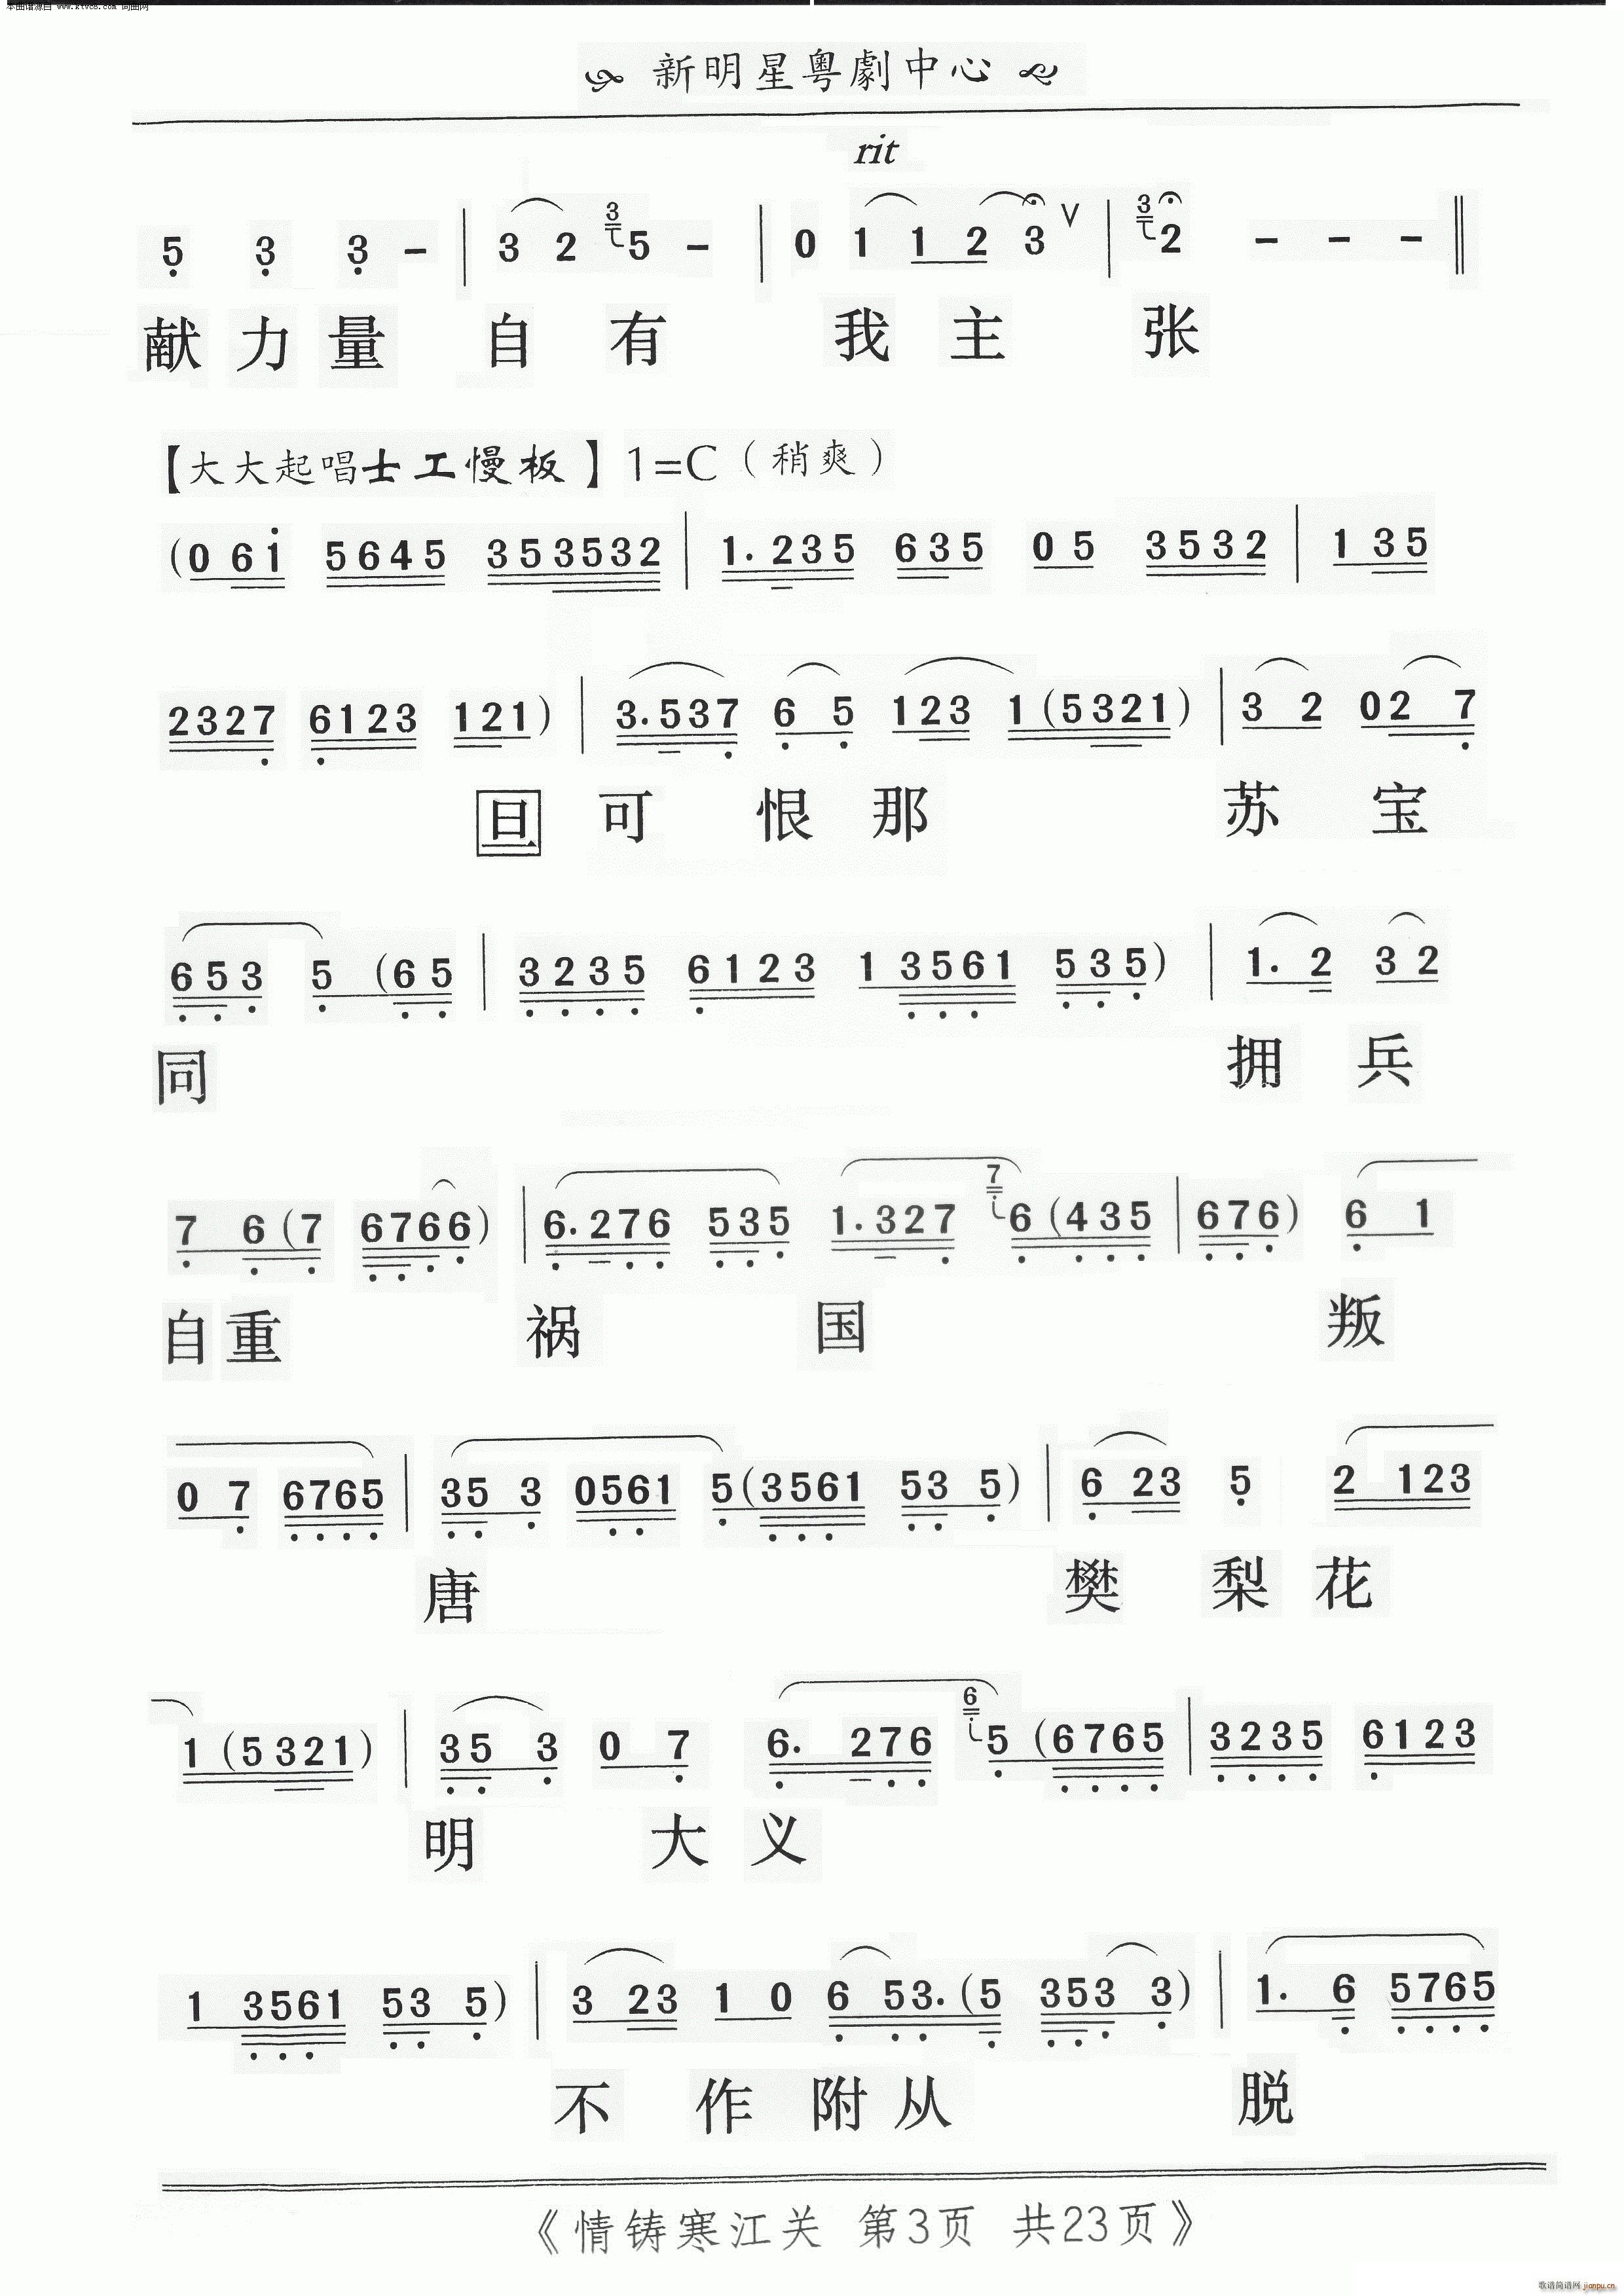 本曲谱源自 www.ktvc8.com 词曲网
新明星粤劇中心
rit
5 3 3 - | 3 2 3 5 - | 0 1 1 2 3 V | 3 2 - - - ‖
献 力 量 自 有 我 主 张
【大大起唱士工慢板】1=C（稍爽）
(0 6i 5645 353532 | 1.235 635 05 3532 | 1 35
2327 6123 121) | 3.537 6 5 123 1(5321) | 3 2 02 7
旦 可 恨 那 苏 宝
653 5 (65 | 3235 6123 1 3561 535) | 1. 2 32
同 拥 兵
7 6(7 6766) | 6.276 535 1.327 7 6(435 | 676) 6 1
自重 祸 国 叛
0 7 6765 | 35 3 0561 5(3561 53 5) | 6 23 5 2 123
唐 樊 梨 花
1(5321) | 35 3 0 7 6. 276 6 5 (6765 | 3235 6123
明 大 义
1 3561 53 5) | 3 23 1 0 6 53.(5 353 3) | 1. 6 5765
不 作 附 从 脱
《情铸寒江关 第3页 共23页》
歌谱简谱网 jianpu.cn